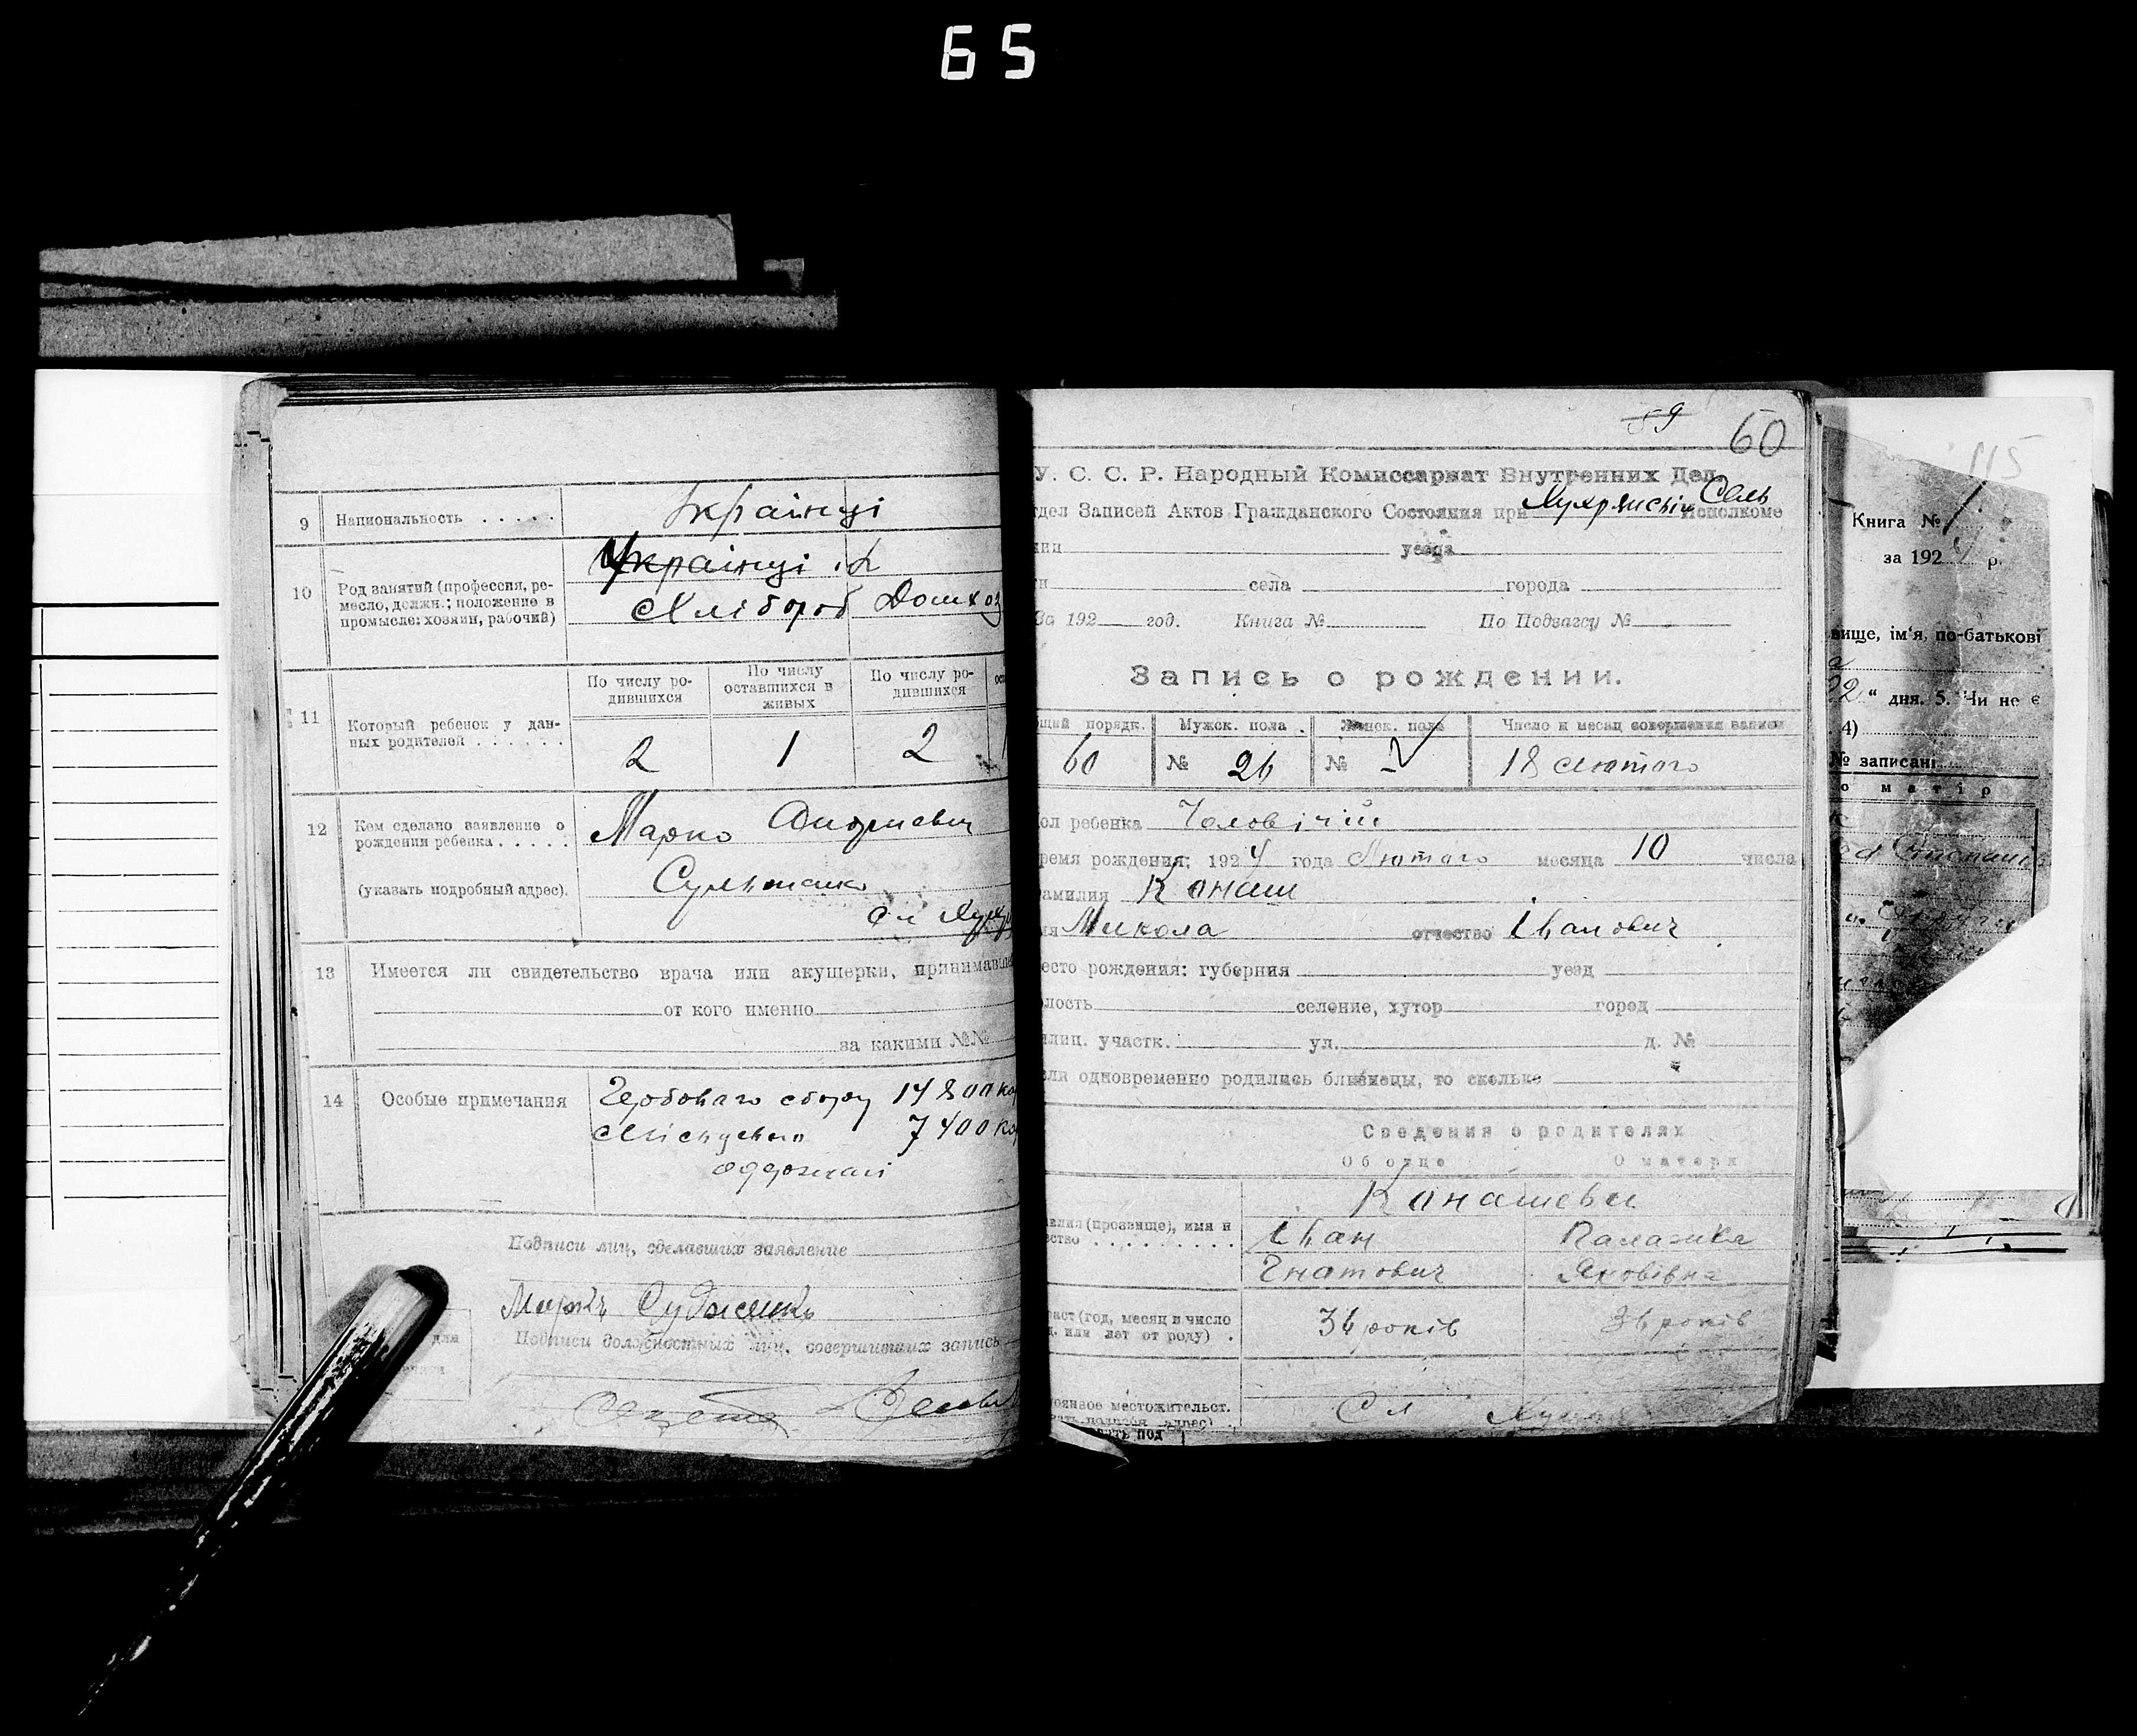 65
9 Национальность . . . . .
Українці
10 Род занятий (профессия, ре-
месло, должн.; положение в
промысле: хозяин, рабочий)
Українці
Хлібороб Домхоз
11 Который ребенок у дан-
ных родителей . . . . . .
По числу ро-
дившихся
По числу
оставшихся в
живых
По числу ро-
дившихся
2 1 2
12 Кем сделано заявление о
рождении ребенка . . . . .
(указать подробный адрес).
Марко
сл
13 Имеется ли свидетельство врача или акушерки, принимавше
от кого именно
за какими №№
14 Особые примечания
Гербового сбору 14800 ко
Місцевого 7400 ко
одержані
Подписи лиц, сделавших заявление
Подписи должностных лиц, совершивших запись
59
60
У. С. С. Р. Народный Комиссариат Внутренних Дел.
дел Записей Актов Гражданского Состояния при Сель Исполкоме
уезда
села города
За 192 год. Книга № По Подзагсу №
Запись о рождении.
порядк. Мужск. пола . Женск. пола Число и месяц совершения записи
60 № 26 № 18 лютого
ол ребенка Чоловічий
ремя рождения: 1924 года Лютого месяца 10 числа
амилия Конаш
мя Микола отчество Іванович
есто рождения: губерния уезд
лость селение, хутор город
лиц. участк. ул. д. №
сли одновременно родились близнецы, то сколько
Сведения о родителях
Об отце О матери
Конашеви
илия (прозвище), имя и
ество . . . . . . . . . .
Іван
Гнатович Яковівна
раст (год, месяц и число
д. или лет от роду) .
36 років 36 років
тоянное местожительст.
адрес) .
Сл
115
Книга №
за 192 р.
вище, ім'я, по-батькові
22" дня. 5. Чи не є
4)
№ записані
о матір